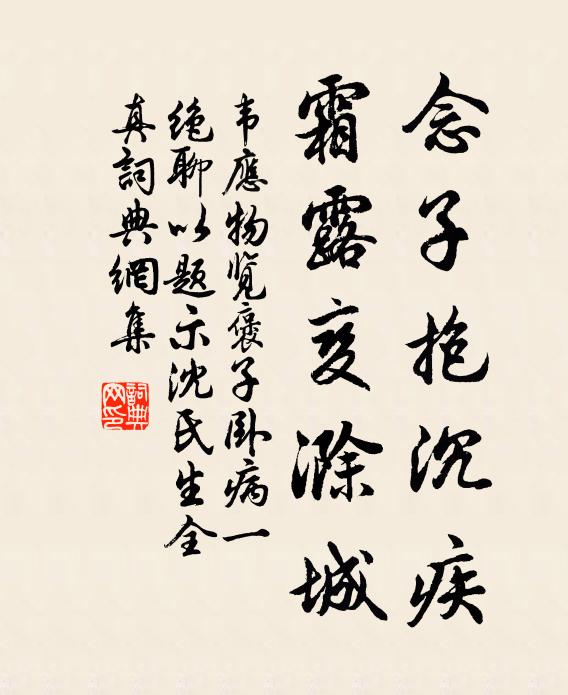 念子抱沉疾
霜露变滁城
韦應物览褒子卧病一
绝聊以题示沈氏生全
真詞典網集
詞典
网印